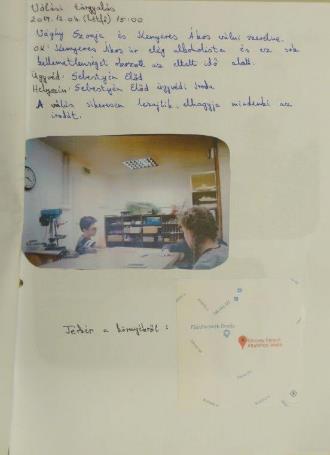 Válási tárgyalás
2019.12.04. (Hétfő) 15:00
Vághy Szonja és Kenyeres Ákos válni szeretne.
OK: Kenyeres Ákos úr elég alkoholista és ez sok
kellemetlenséget okozott az eltelt idő alatt.
Ügyvéd: Sebestyén Előd
Helyszín: Sebestyén Előd ügyvédi iroda
A válás sikeresen lezajlik, elhagyja mindenki az
irodát.
Térkép a környékről: